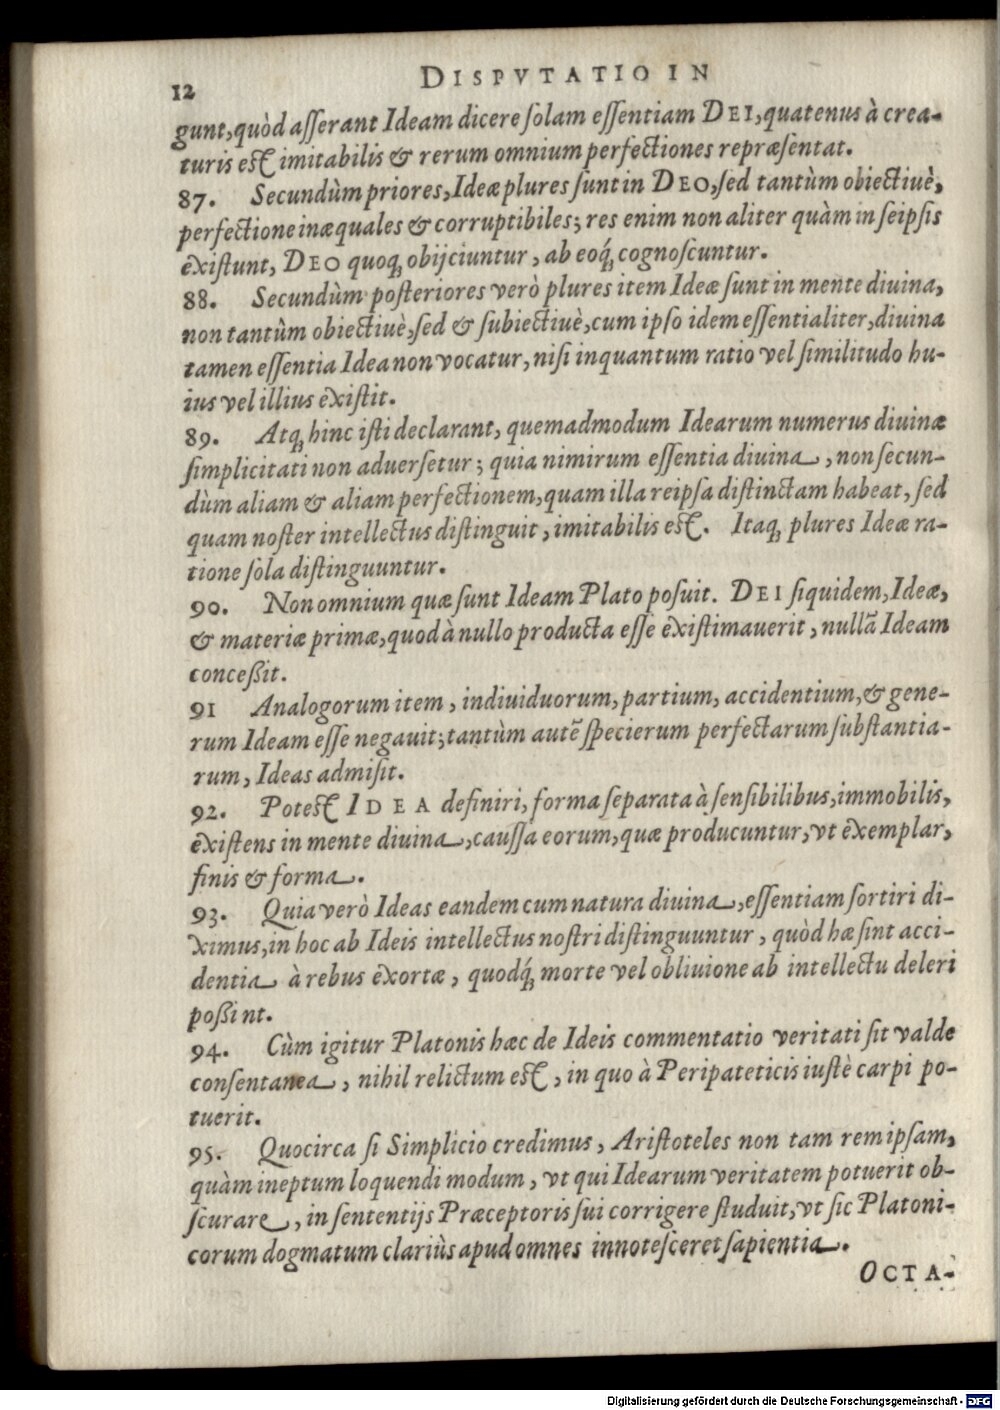 12 DISPVTATIO IN
gunt, quòd aſſerant Ideam dicere ſolam eſſentiam DEI, quatenus à crea-
turis eſt imitabilis & rerum omnium perfectiones repræſentat.
87. Secundùm priores, Ideæ plures ſunt in DEO, ſed tantùm obiectiuè,
perfectione inæquales & corruptibiles; res enim non aliter quàm in ſeipſis
exiſtunt, DEO quoq́; obijciuntur, ab eoq́; cognoſcuntur.
88. Secundùm poſteriores verò plures item Ideæ ſunt in mente diuina,
non tantùm obiectiuè, ſed & ſubiectiuè, cum ipſo idem eſſentialiter, diuina
tamen eſſentia Idea non vocatur, niſi inquantum ratio vel ſimilitudo hu-
ius vel illius exiſtit.
89. Atq; hinc iſti declarant, quemadmodum Idearum numerus diuinæ
ſimplicitati non aduerſetur; quia nimirum eſſentia diuina, non ſecun-
dùm aliam & aliam perfectionem, quam illa reipſa diſtinctam habeat, ſed
quam noſter intellectus diſtinguit, imitabilis eſt. Itaq; plures Ideæ ra-
tione ſola diſtinguuntur.
90. Non omnium quæ ſunt Ideam Plato poſuit. DEI ſiquidem, Ideæ,
& materiæ primæ, quod à nullo producta eſſe exiſtimauerit, nullā Ideam
conceßit.
91 Analogorum item, indiuiduorum, partium, accidentium, & gene-
rum Ideam eſſe negauit; tantùm autē ſpecierum perfectarum ſubſtantia-
rum, Ideas admiſit.
92. Poteſt IDEA definiri, forma ſeparata à ſenſibilibus, immobilis,
exiſtens in mente diuina, cauſſa eorum, quæ producuntur, vt exemplar,
finis & forma.
93. Quia verò Ideas eandem cum natura diuina, eſſentiam ſortiri di-
ximus, in hoc ab Ideis intellectus noſtri diſtinguuntur, quòd hæ ſint acci-
dentia à rebus exortæ, quodq́; morte vel obliuione ab intellectu deleri
poßint.
94. Cùm igitur Platonis hæc de Ideis commentatio veritati ſit valde
conſentanea, nihil relictum eſt, in quo à Peripateticis iuſtè carpi po-
tuerit.
95. Quocirca ſi Simplicio credimus, Ariſtoteles non tam rem ipſam,
quàm ineptum loquendi modum, vt qui Idearum veritatem potuerit ob-
ſcurare, in ſententijs Præceptoris ſui corrigere ſtuduit, vt ſic Platoni-
corum dogmatum clariùs apud omnes innoteſceret ſapientia.
OCTA-
Digitalisierung gefördert durch die Deutsche Forschungsgemeinschaft - DFG